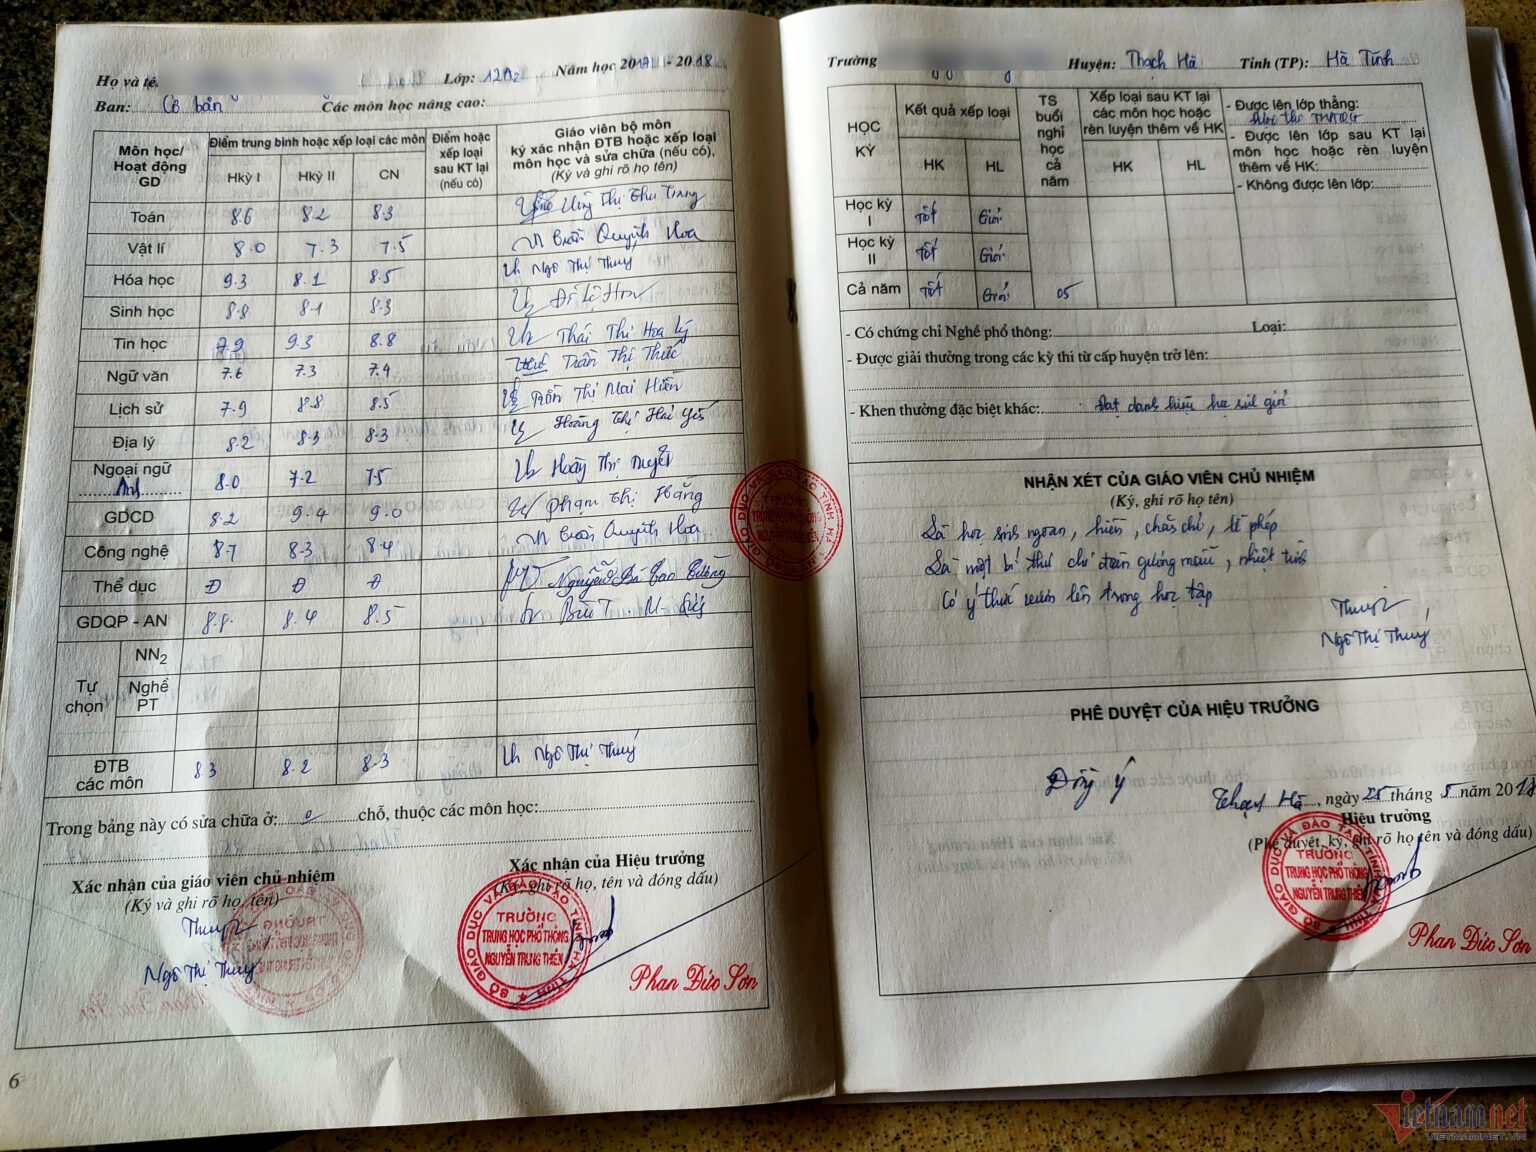 Họ và tê. Lớp: 12A2 Năm học 2017 - 2018
Ban: Cơ bản Các môn học nâng cao:
Môn học/ Hoạt động GD
Điểm trung bình hoặc xếp loại các môn
Hkỳ I Hkỳ II CN
Điểm hoặc xếp loại sau KT lại (nếu có)
Giáo viên bộ môn
ký xác nhận ĐTB hoặc xếp loại
môn học và sửa chữa (nếu có),
(Ký và ghi rõ họ tên)
Toán 8.6 8.2 8.3 Thị Thu Trang
Vật lí 8.0 7.3 7.5 Trần Quỳnh Hoa
Hóa học 9.3 8.1 8.5 Ngô Thị Thuý
Sinh học 8.8 8.1 8.3
Tin học 7.9 9.3 8.8 Thái Thị Hoa Lý
Ngữ văn 7.6 7.3 7.4 Trần Thị Thức
Lịch sử 7.9 8.8 8.5 Trần Thị Mai Hiền
Địa lý 8.2 8.3 8.3 Hoàng Thị Hải Yến
Ngoại ngữ 8.0 7.2 7.5 Hoàng Thị Tuyết
Anh
GDCD 8.2 9.4 9.0 Phạm Thị Hằng
Công nghệ 8.7 8.3 8.4 Trần Quỳnh Hoa
Thể dục Đ Đ Đ Nguyễn Bá Cao Cường
GDQP - AN 8.8 8.4 8.5
Tự chọn
NN2
Nghề PT
ĐTB các môn 8.3 8.2 8.3 Ngô Thị Thuý
Trong bảng này có sửa chữa ở: 0 chỗ, thuộc các môn học:
Xác nhận của giáo viên chủ nhiệm
(Ký và ghi rõ họ, tên)
Thuý
Ngô Thị Thuý
Xác nhận của Hiệu trưởng
(Ký, ghi rõ họ, tên và đóng dấu)
SỞ GIÁO DỤC VÀ ĐÀO TẠO TỈNH HÀ TĨNH
TRƯỜNG
TRUNG HỌC PHỔ THÔNG
NGUYỄN TRUNG THIÊN
Phan Đức Sơn
6
Trường Huyện: Thạch Hà Tỉnh (TP): Hà Tĩnh
HỌC KỲ
Kết quả xếp loại
HK HL
TS buổi nghỉ học cả năm
Xếp loại sau KT lại các môn học hoặc rèn luyện thêm về HK
HK HL
- Được lên lớp thẳng:
- Được lên lớp sau KT lại
môn học hoặc rèn luyện
thêm về HK:
- Không được lên lớp:
Học kỳ I Tốt Giỏi
Học kỳ II Tốt Giỏi
Cả năm Tốt Giỏi 05
- Có chứng chỉ Nghề phổ thông: Loại:
- Được giải thưởng trong các kỳ thi từ cấp huyện trở lên:
- Khen thưởng đặc biệt khác: Đạt danh hiệu học sinh giỏi
NHẬN XÉT CỦA GIÁO VIÊN CHỦ NHIỆM
(Ký, ghi rõ họ tên)
Là học sinh ngoan, hiền, chăm chỉ, lễ phép
Là một bí thư chi đoàn gương mẫu, nhiệt tình
Có ý thức vươn lên trong học tập
Thuý
Ngô Thị Thuý
PHÊ DUYỆT CỦA HIỆU TRƯỞNG
Đồng ý
Thạch Hà, ngày 25 tháng 5 năm 2018
Hiệu trưởng
(Phê duyệt, ký, ghi rõ họ tên và đóng dấu)
SỞ GIÁO DỤC VÀ ĐÀO TẠO TỈNH HÀ TĨNH
TRƯỜNG
TRUNG HỌC PHỔ THÔNG
NGUYỄN TRUNG THIÊN
Phan Đức Sơn
Vietnamnet
VIETNAMNET.VN